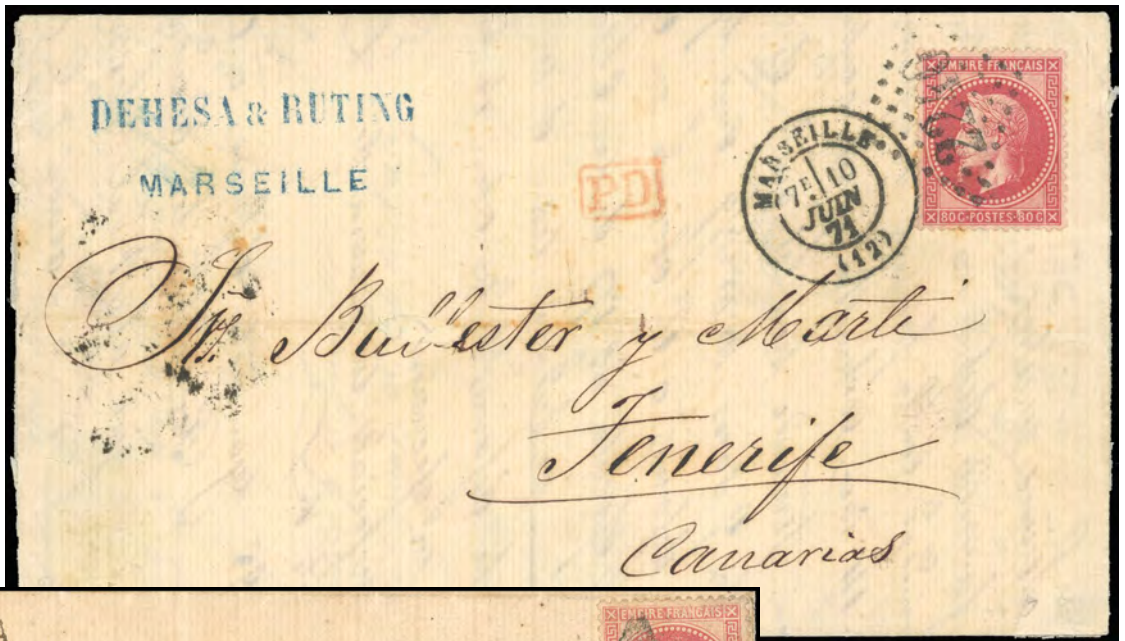 DEHESA & RUTING
MARSEILLE
PD
MARSEILLE
7E 10
JUIN
71
(12)
EMPIRE FRANÇAIS
80 C·POSTES·80 C
y Marti
Tenerife
Canarias
EMPIRE FRANÇAIS